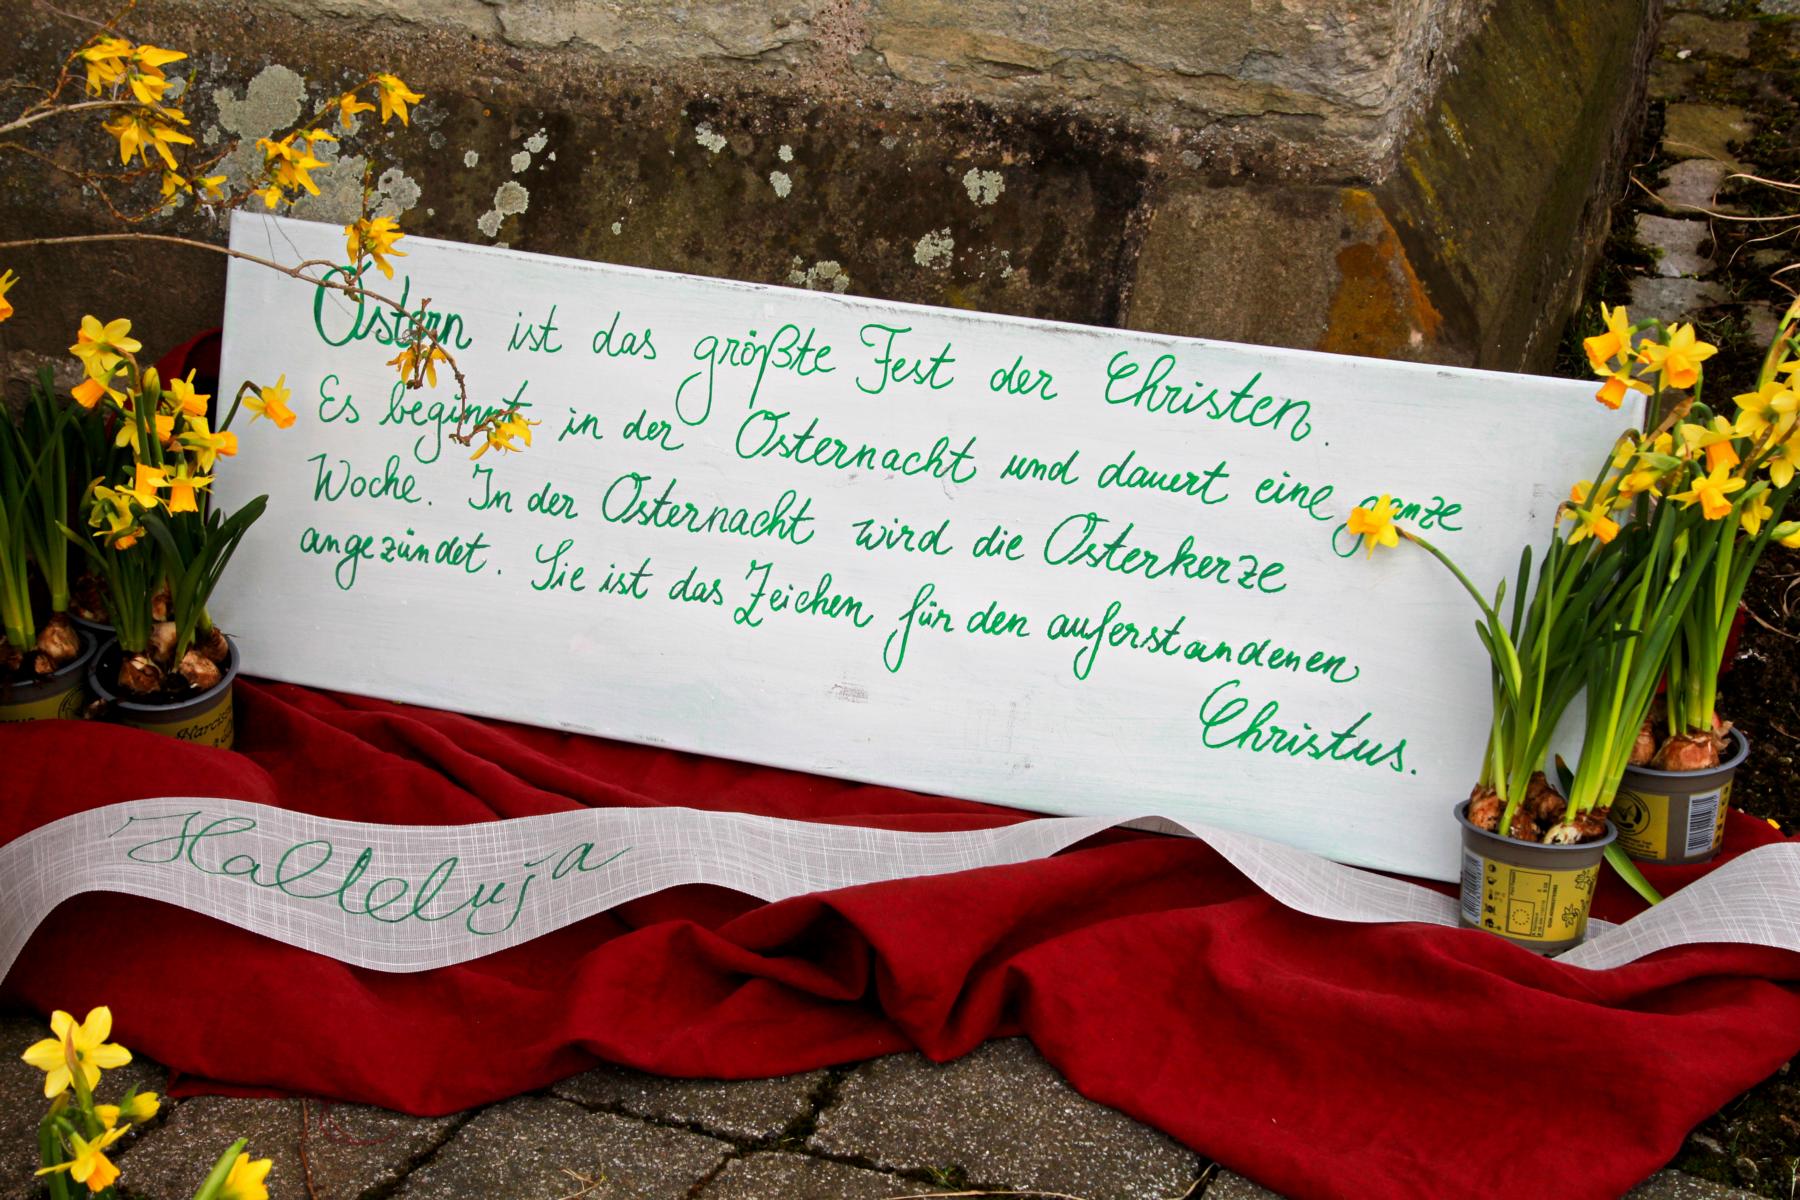 Ostern ist das größte Fest der Christen.
Es beginnt in der Osternacht und dauert eine ganze
Woche. In der Osternacht wird die Osterkerze
angezündet. Sie ist das Zeichen für den auferstandenen
Christus.
Halleluja